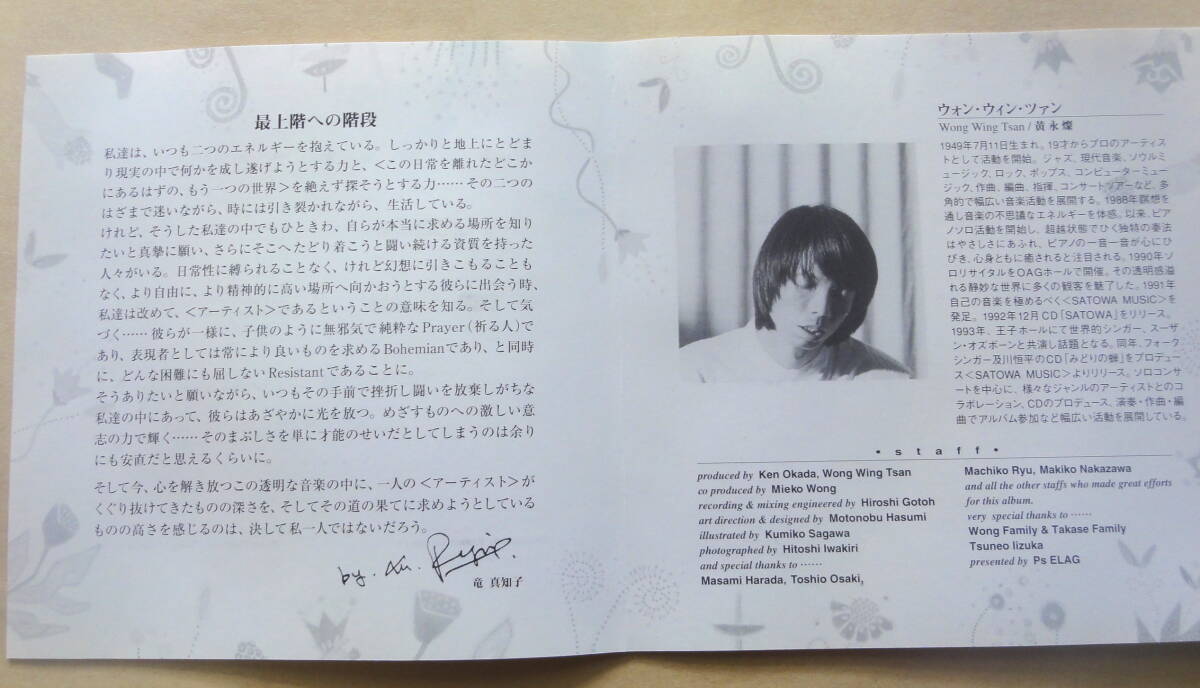 最上階への階段
私達は、いつも二つのエネルギーを抱えている。しっかりと地上にとどま
り現実の中で何かを成し遂げようとする力と、<この日常を離れたどこか
にあるはずの、もう一つの世界>を絶えず探そうとする力……その二つの
はざまで迷いながら、時には引き裂かれながら、生活している。
けれど、そうした私達の中でもひときわ、自らが本当に求める場所を知り
たいと真摯に願い、さらにそこへたどり着こうと闘い続ける資質を持った
人々がいる。日常性に縛られることなく、けれど幻想に引きこもることも
なく、より自由に、より精神的に高い場所へ向かおうとする彼らに出会う時、
私達は改めて、<アーティスト>であるということの意味を知る。そして気
づく……彼らが一様に、子供のように無邪気で純粋なPrayer(祈る人)で
あり、表現者としては常により良いものを求めるBohemianであり、と同時
に、どんな困難にも屈しないResistantであることに。
そうありたいと願いながら、いつもその手前で挫折し闘いを放棄しがちな
私達の中にあって、彼らはあざやかに光を放つ。めざすものへの激しい意
志の力で輝く……そのまぶしさを単に才能のせいだとしてしまうのは余り
にも安直だと思えるくらいに。
そして今、心を解き放つこの透明な音楽の中に、一人の<アーティスト>が
くぐり抜けてきたものの深さを、そしてその道の果てに求めようとしている
ものの高さを感じるのは、決して私一人ではないだろう。
by.
竜 真知子
ウォン・ウィン・ツァン
Wong Wing Tsan / 黄永燦
1949年7月11日生まれ。19才からプロのアーティス
トとして活動を開始。ジャズ、現代音楽、ソウルミ
ュージック、ロック、ポップス、コンピューターミュー
ジック、作曲、編曲、指揮、コンサートツアーなど、多
角的で幅広い音楽活動を展開する。1988年瞑想を
通し音楽の不思議なエネルギーを体感。以来、ピア
ノソロ活動を開始し、超越状態でひく独特の奏法
はやさしさにあふれ、ピアノの一音一音が心にひ
びき、心身ともに癒されると注目される。1990年ソ
ロリサイタルをOAGホールで開催。その透明感溢
れる静妙な世界に多くの観客を魅了した。1991年
自己の音楽を極めるべく<SATOWA MUSIC>を
発足。1992年12月CD「SATOWA」をリリース。
1993年、王子ホールにて世界的シンガー、スーザ
ン・オズボーンと共演し話題となる。同年、フォーク
シンガー及川恒平のCD「みどりの蝉」をプロデュー
ス<SATOWA MUSIC>よりリリース。ソロコンサ
ートを中心に、様々なジャンルのアーティストとのコ
ラボレーション、CDのプロデュース、演奏・作曲・編
曲でアルバム参加など幅広い活動を展開している。
• staff •
produced by Ken Okada, Wong Wing Tsan
co produced by Mieko Wong
recording & mixing engineered by Hiroshi Gotoh
art direction & designed by Motonobu Hasumi
illustrated by Kumiko Sagawa
photographed by Hitoshi Iwakiri
and special thanks to ……
Masami Harada, Toshio Osaki,
Machiko Ryu, Makiko Nakazawa
and all the other staffs who made great efforts
for this album.
very special thanks to ……
Wong Family & Takase Family
Tsuneo Iizuka
presented by Ps ELAG